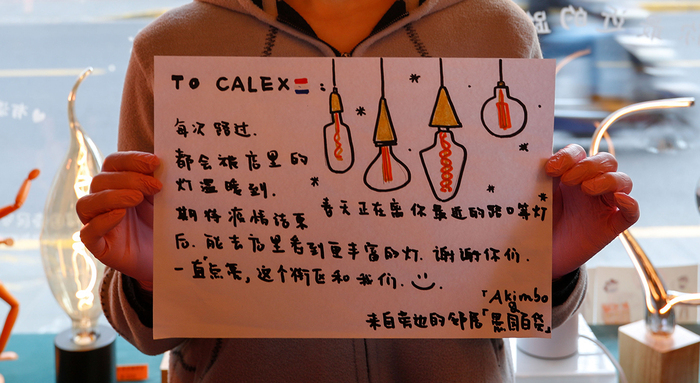 TO CALEX :
每次路过.
都会被店里的
灯温暖到.
期待疫情结束
春天正在离你最近的路口等灯
后.能去店里看到更丰富的灯.谢谢你们.
一直点亮,这个街区和我们.
「Akimbo
&
来自奕也的邻居「愚园百货」